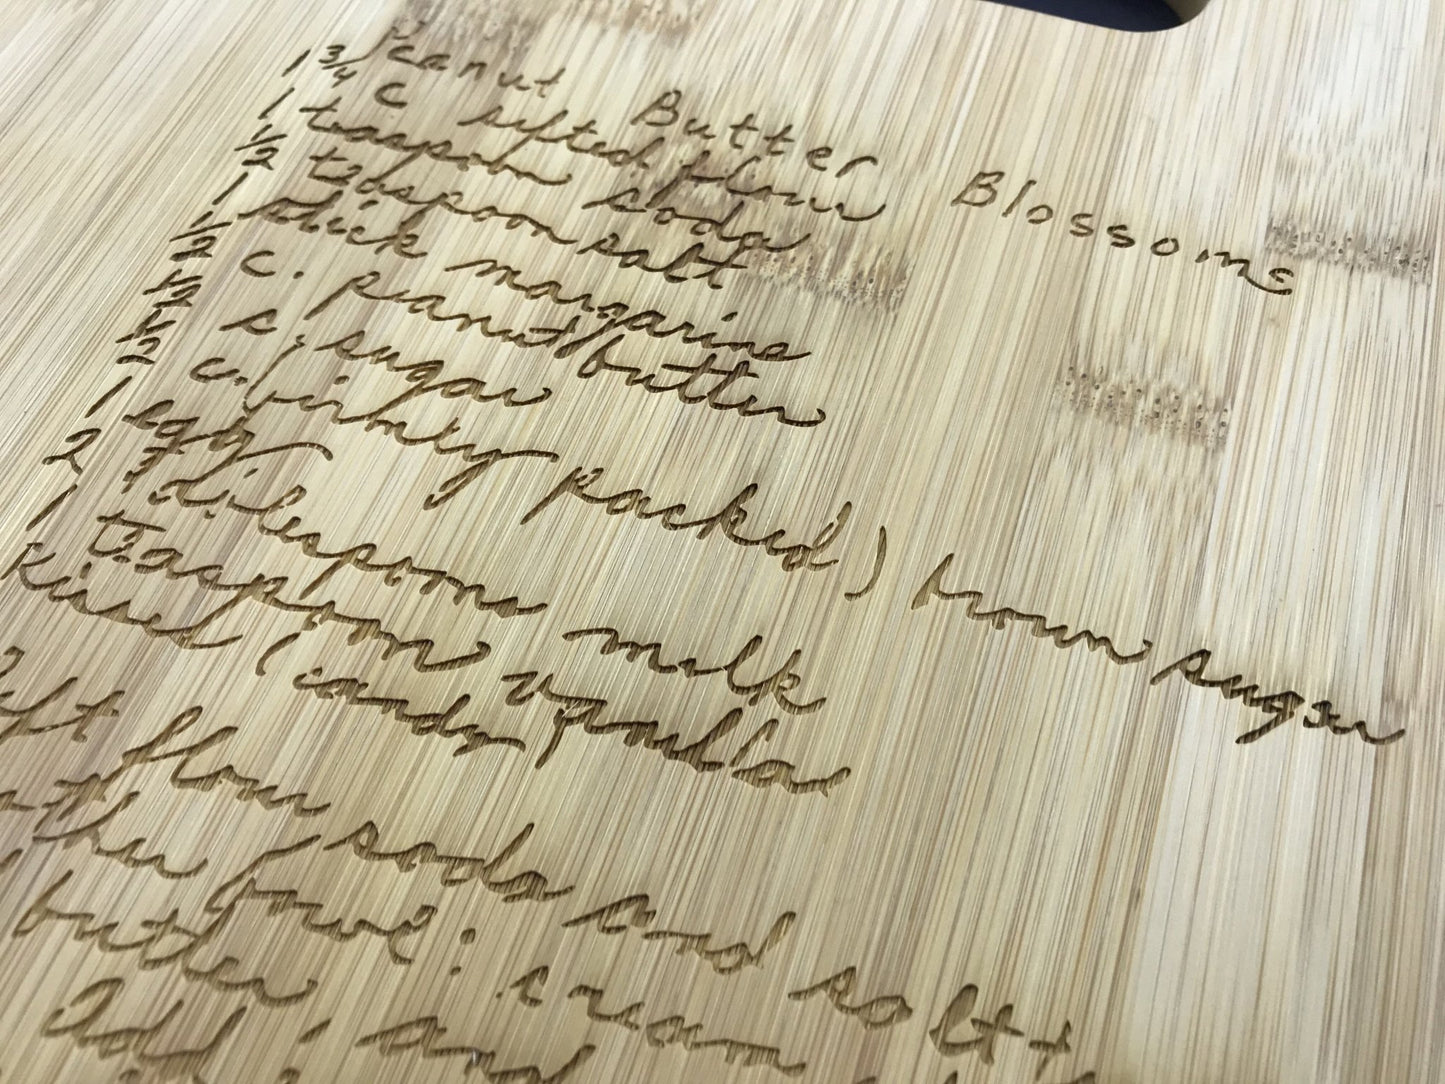 Peanut Butter Blossoms
1 3/4 c sifted flour
1 teaspoon soda
1/2 teaspoon salt
1 stick margarine
1/2 c. peanut butter
1/2 c. sugar
1/2 c. (firmly packed) brown sugar
1 egg
2 tablespoons milk
1 teaspoon vanilla
Kisses (candy)
Sift flour, soda and salt
bowl: cream
butter and
add